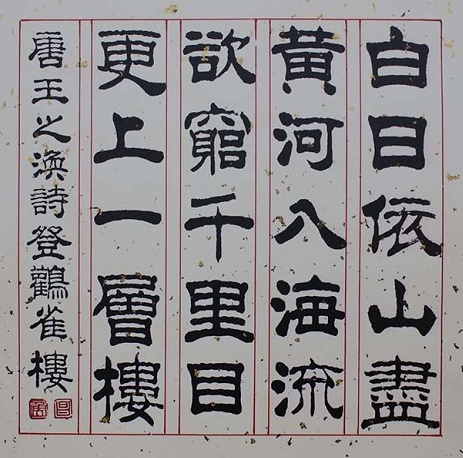 白日依山盡
黃河入海流
欲窮千里目
更上一層樓
唐王之渙詩登鸛雀樓